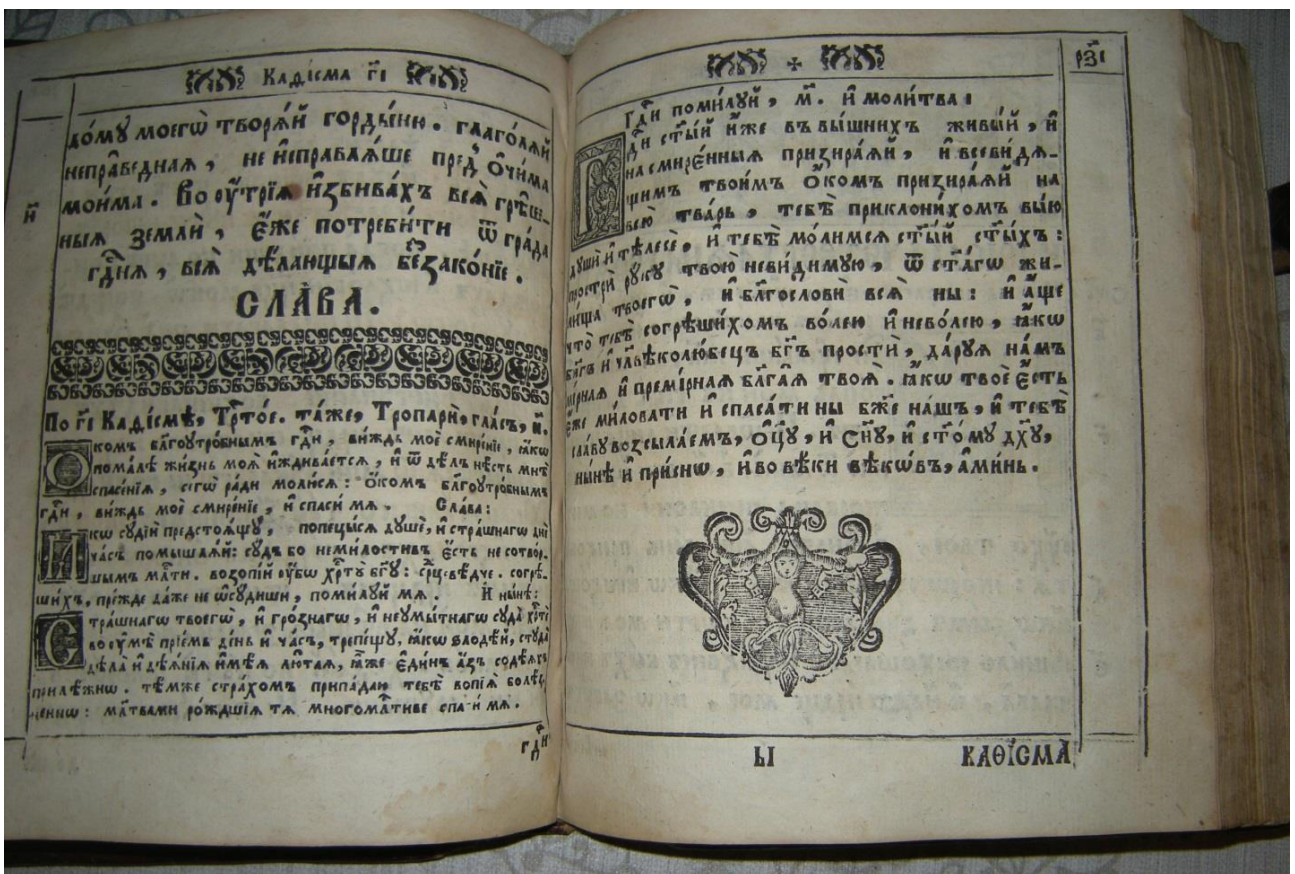 Каѳісма г҃і
до́му моегѡ̀ творѧ́й горды́ню. глаго́лѧй
непра́веднаѧ, не и҆справлѧ́ше пред̾ ѻ҆чи́ма
мои́ма. Во ᲂу҆́трїѧ и҆збива́хъ всѧ̀ грѣ́ш-
и҃
ныѧ землѝ, є҆́же потреби́ти ѿ гра́да
гдⷭ҇нѧ, всѧ̀ дѣ́лающыѧ беззако́нїе.
СЛА́ВА.
По г҃і Каді́смѣ, Трⷭ҇то́е. та́же, Тропарѝ, гла́съ, и҃.
Ѻ҆́комъ блг҃оутро́бнымъ гдⷭ҇и, ви́ждь моѐ смире́нїе, ꙗ҆́кѡ
пома́лѣ жи́знь моѧ̀ и҆ждива́етсѧ, и҆ ѿ дѣ́лъ нѣ́сть мнѣ̀
спасе́нїѧ, сегѡ̀ ра́ди молю́сѧ: ѻ҆́комъ блг҃оутро́бнымъ
гдⷭ҇и, ви́ждь моѐ смире́нїе, и҆ спаси́ мѧ. Сла́ва:
Ꙗ҆́кѡ сꙋдїѝ предстоѧ́щꙋ, попецы́сѧ дꙋшѐ, и҆ стра́шнагѡ днѐ
ча́съ помышлѧ́й: сꙋ́дъ бо неми́лостивъ є҆́сть не сотво́р-
шымъ мⷧ҇ти. возопі́й ᲂу҆̀бѡ хрⷭ҇тꙋ̀ бг҃ꙋ: срⷣцевѣ́дче. согрѣ-
ши́хъ, пре́жде да́же не ѡ҆сꙋ́диши, поми́лꙋй мѧ. И҆ ны́нѣ:
Стра́шнагѡ твоегѡ̀, и҆ гро́знагѡ, и҆ неꙋмы́тнагѡ сꙋда̀ хрⷭ҇тѐ
во ᲂу҆мѣ̀ прїе́мъ де́нь и҆ ча́съ, трепе́щꙋ, ꙗ҆́кѡ ѕлодѣ́й, стꙋда̀
дѣла̀ и҆ дѣѧ́нїѧ и҆мѣ́ѧ лю́таѧ, ꙗ҆́же є҆ди́нъ а҆́зъ содѣ́ѧхъ
прилѣ́жнѡ. тѣ́мже стра́хомъ припа́даю тебѣ̀ вопїѧ̀ болѣ́з-
неннѡ: мл҃твами ро́ждшїѧ тѧ̀ многомⷧ҇тиве спаси́ мѧ.
гдⷭ҇и
рз҃і
Гдⷭ҇и поми́лꙋй, м҃. и҆ моли́тва:
Гдⷭ҇и ст҃ы́й и҆́же въ вы́шнихъ живы́й, и҆
на смире́нныѧ призира́ѧй, и҆ всеви́дѧ-
щимъ твои́мъ ѻ҆́комъ призира́ѧй на
всю̀ тва́рь, тебѣ̀ приклони́хомъ вы́ю
дꙋшѝ и҆ тѣлесѐ, и҆ тебѣ̀ мо́лимсѧ ст҃ы́й ст҃ы́хъ:
прострѝ рꙋ́кꙋ твою̀ неви́димꙋю, ѿ ст҃а́гѡ жи-
ли́ща твоегѡ̀, и҆ блгⷭ҇ословѝ всѧ̀ ны: и҆ а҆́ще
что̀ тебѣ̀ согрѣши́хомъ во́лею и҆ нево́лею, ꙗ҆́кѡ
бл҃гъ и҆ чл҃вѣколю́бецъ бг҃ъ простѝ, да́рꙋѧ на́мъ
ми́рнаѧ и҆ преми́рнаѧ бл҃га́ѧ твоѧ̀. ꙗ҆́кѡ твоѐ є҆́сть
є҆́же ми́ловати и҆ спаса́ти ны бж҃е на́шъ, и҆ тебѣ̀
сла́вꙋ возсыла́емъ, ѻ҆ц҃ꙋ̀, и҆ сн҃ꙋ, и҆ ст҃о́мꙋ дх҃ꙋ,
ны́нѣ и҆ при́снѡ, и҆ во вѣ́ки вѣкѡ́въ, а҆ми́нь.
Ы КАѲІ́СМА